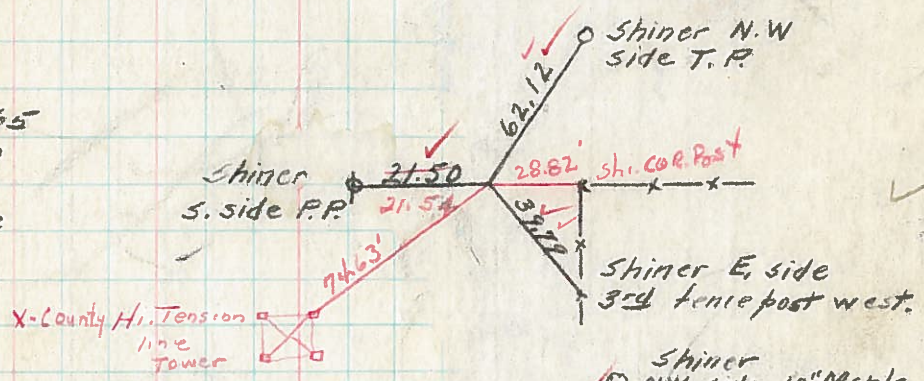 Shiner N.W
side T.P.
62.12
Shiner
S. side P.P.
21.50
21.54
28.82'
Shi. COR. Post
39.79
74.63'
Shiner E, side
3rd fence post west.
X-County Hi. Tension
line
Tower
Shiner